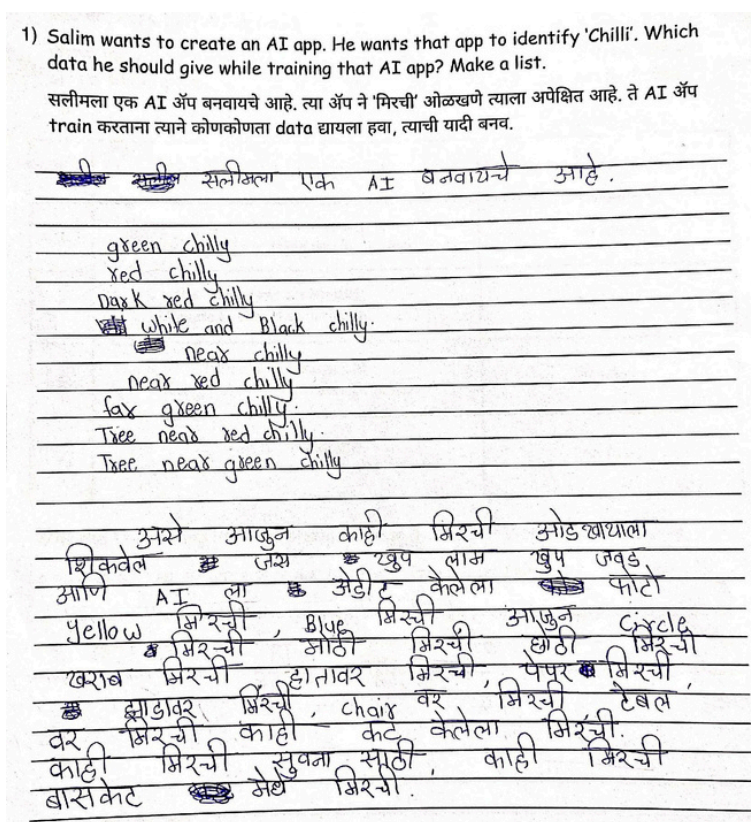 1) Salim wants to create an AI app. He wants that app to identify 'Chilli'. Which
data he should give while training that AI app? Make a list.
सलीमला एक AI ॲप बनवायचे आहे. त्या ॲप ने 'मिरची' ओळखणे त्याला अपेक्षित आहे. ते AI ॲप
train करताना त्याने कोणकोणता data द्यायला हवा, त्याची यादी बनव.
सलीमला एक AI बनवायचे आहे.
green chilly
red chilly
Dark red chilly
white and Black chilly.
near chilly
near red chilly
far green chilly.
Tree near red chilly.
Tree near green chilly
असे आजुन काही मिरची ओडखायाला
शिकवेल जस खुप लाम खुप जवड
आणि AI ला अेडीट केलेला फोटो
yellow मिरची, Blue मिरची आजुन Circle
मिरची मोठी मिरची छोठी मिरची
खराब मिरची हातावर मिरची, पेपर मिरची
झाडावर मिरची, chair वर मिरची टेबल
वर मिरची काही कट केलेला मिरची.
काही मिरची सुवना साठी, काही मिरची
बासकेट मेधे मिरची.